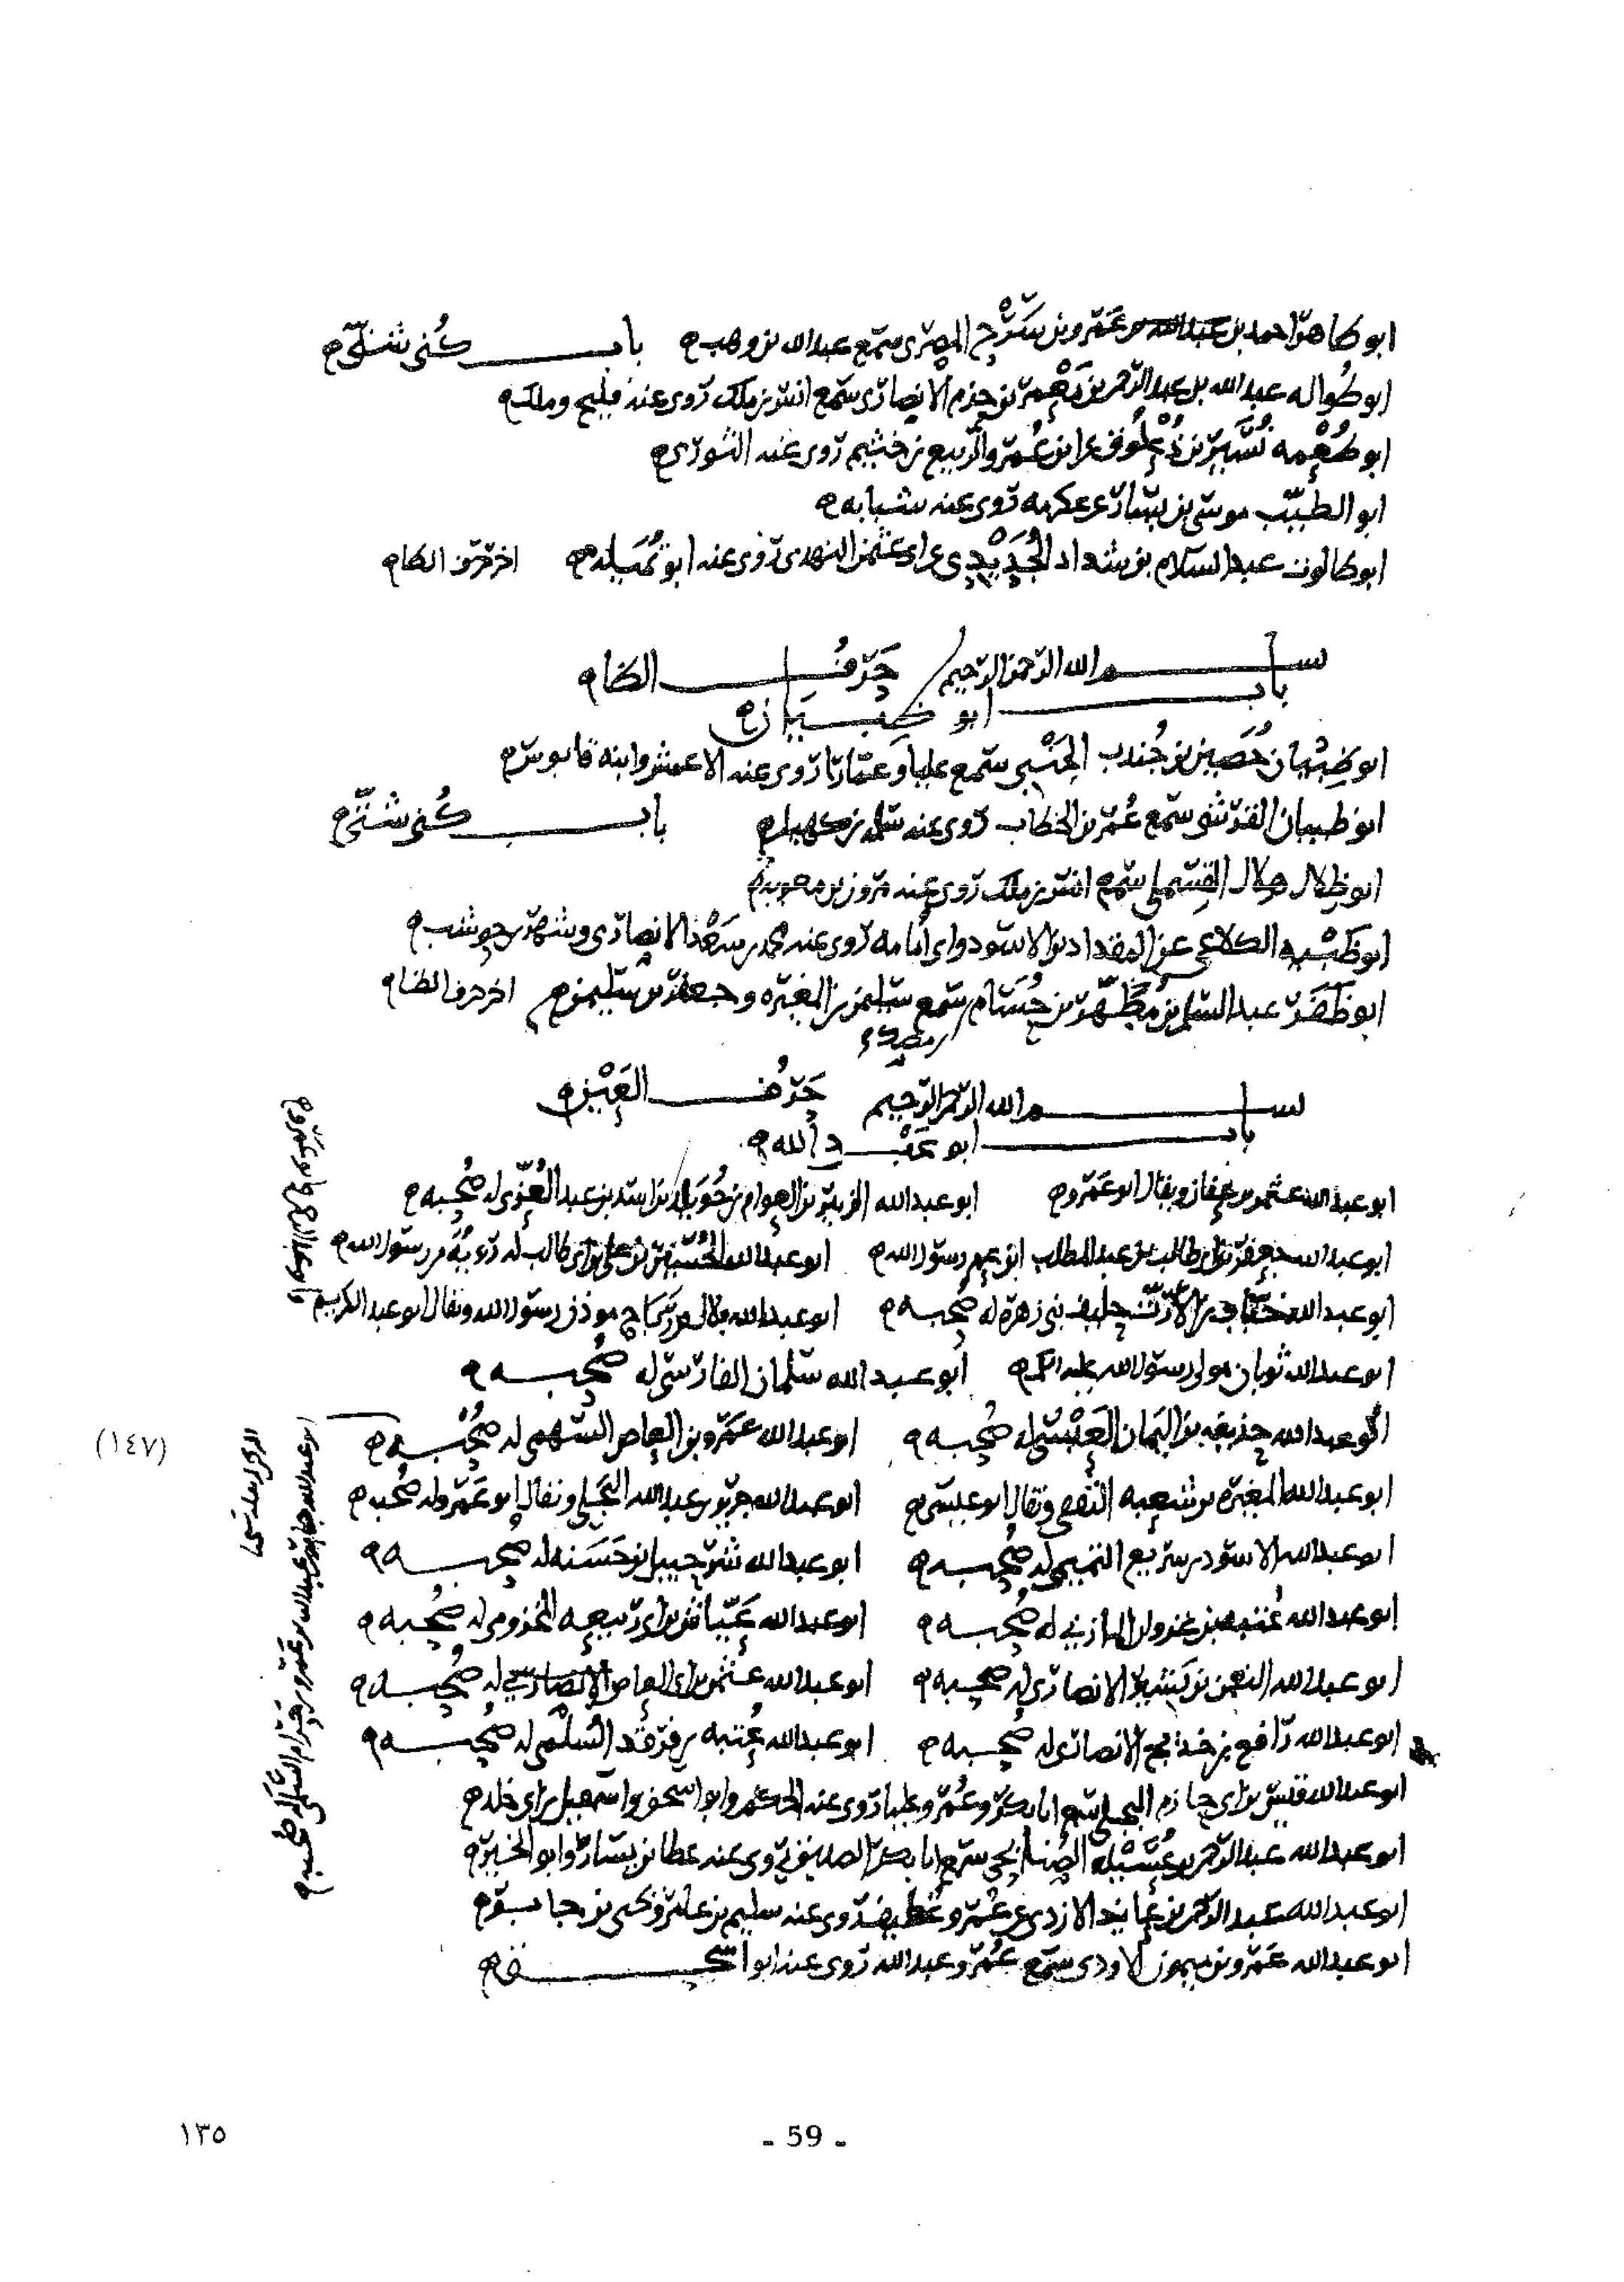 ابو طاهر احمد بن عمرو بن سَرْح المصرى سمع عبدالله بن وهب ه باب كُنى شتى ه
ابو طُواله عبد الله بن عبد الرحمن بن مَعْمر بن حزم الانصارى سمع انس بن ملك روى عنه فليح وملك ه
ابو طُعْمه نُسَير بن ذُعْلُوق عن ابن عُمر والربيع بن خثيم روى عنه الثورى ه
ابو الطيّب موسى بن يسار عن عكرمه روى عنه شبابه ه
ابو طالوت عبد السلام بن شداد الجُدَيْدِي عن ابى عثمن النهدى روى عنه ابو تُمَيله ه اخر حرف الطا ه
بسم الله الرحمن الرحيم حَرفُ الظا ه
باب ابو ظَبيان ه
ابو ظبْيان حُصَين بن جُندب الجَنْبى سمع عليا وعمّارا روى عنه الاعمش وابنه قابوس ه
ابو ظبيان القرشى سمع عُمر بن الخطاب روى عنه سلمه بن كهيل ه باب كُنى شتّى ه
ابو ظلال هلال القسملى سمع انس بن ملك روى عنه مروان بن معويه ه
ابو ظَبْيه الكلاعى عن المقداد بن الاسود وابى أمامه روى عنه محمد بن سَعْد الانصارى وشهر بن حوشب ه
ابو ظَفَر عبد السلم بن مُطَهّر بن حُسَام سمع سليمن بن المغيره وجعفر بن سليمن ه اخر حرف الظا ه
بن مصك
بسم الله الرحمن الرحيم حَرْفُ العَيْن ه
باب ابو عَبْد الله ه
ابو عبد الله عثمن بن عفان ويقال ابو عَمْرو ه ابو عبدالله الزبير بن العوام بن خُوَيلد بن اسد بن عبد العُزّى له صُحبه ه
ابو عبدالله جعفر بن ابى طالب بن عبد المطلب ابن عم رسول الله ه ابو عبدالله الحُسَين بن على بن ابى طالب له رؤيةٌ من رسول الله ه
ابو عبدالله خبّاب بن الأرتّ حليف بنى زهره له صُحبه ه ابو عبدالله بلال بن رَبَاح موذن رسول الله ويقال ابو عبد الكريم
ابو عبدالله ثوبان مولى رسول الله عليه السلم ه ابو عبد الله سلمان الفارسى له صُحبه ه
ابو عبدالله حذيفه بن اليمان العَبْسى له صُحبه ه ابو عبدالله عمرو بن العاص السّهمى له صُحْبه ه
(١٤٧)
ابو عبدالله المغيره بن شعبه الثقفى ويقال ابو عيسى ه ابو عبدالله جرير بن عبدالله البَجَلى ويقال ابو عَمرو له صُحبه ه
ابو عبدالله الاسود بن سريع التميمى له صُحبه ه ابو عبدالله شُرَحبيل بن حَسَنه له صُحبه ه
ابو عبدالله عُتبه بن غزوان المازنى له صُحبه ه ابو عبدالله عَيّاش بن ابى ربيعه المخزومى له صُحبه ه
ابو عبدالله النعمن بن بَشير الانصارى له صحبه ه ابو عبدالله عثمن بن ابى العاص له صُحبه ه
ابو عبدالله رافع بن خديج الانصارى له صُحبه ه ابو عبدالله عُتبه بن فرقد السُلَمى له صُحبه ه
ابو عبدالله قيس بن ابى حازم البجلى سمع ابا بكر وعُمر وعليا روى عنه الحكم وابو اسحق واسمعيل بن ابى خلد ه
ابو عبدالله عبد الرحمن بن عُسَيْله الصُنابحى سمع ابا بكر الصديق روى عنه عطا بن يسار وابو الخير ه
ابو عبدالله عبد الرحمن بن عايذ الازدى عن عُمر وغُطيف روى عنه سليم بن عامر ويحيى بن جابر ه
ابو عبدالله عَمرو بن ميمون الاودى سمع عُمر وعبدالله روى عنه ابو اسحق ه
ابو عبدالله جابر بن عبدالله بن عَمرو بن حَرام السلمى له صحبه ه
- 59 -
١٣٥